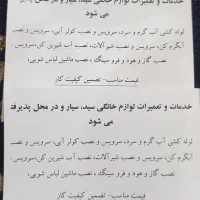 خدمات و تعمیرات لوازم خانگی سید، سیار و در محل پذیرفته
می شود
لوله کشی آب گرم و سرد، سرویس و نصب کولر آبی، سرویس و نصب
آبگرم کن، سرویس و نصب شیرآلات، نصب آب شیرین کن، سرویس و
نصب گاز و هود و فر و سینگ ، نصب ماشین لباس شویی،
قیمت مناسب- تضمین کیفیت کار
خدمات و تعمیرات لوازم خانگی سید، سیار و در محل پذیرفته
می شود
لوله کشی آب گرم و سرد، سرویس و نصب کولر آبی، سرویس و نصب
آبگرم کن، سرویس و نصب شیرآلات، نصب آب شیرین کن، سرویس
نصب گاز و هود و فر و سینگ ، نصب ماشین لباس شویی،
قیمت مناسب- تضمین کیفیت کار